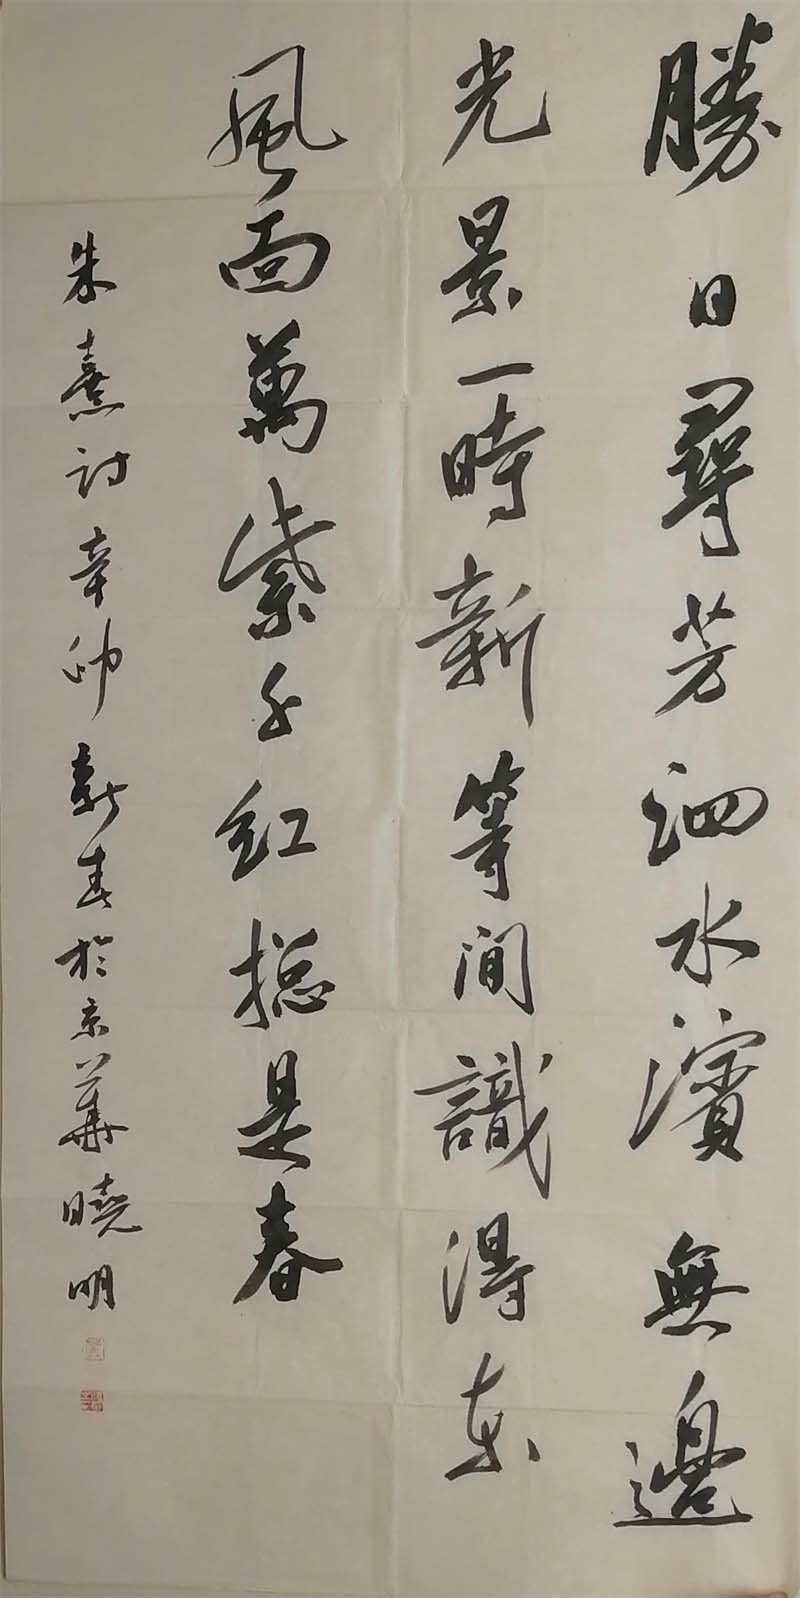 勝日尋芳泗水濱無邊
光景一時新等閒識得東
風面萬紫千紅總是春
朱熹詩辛卯新春於京華曉明